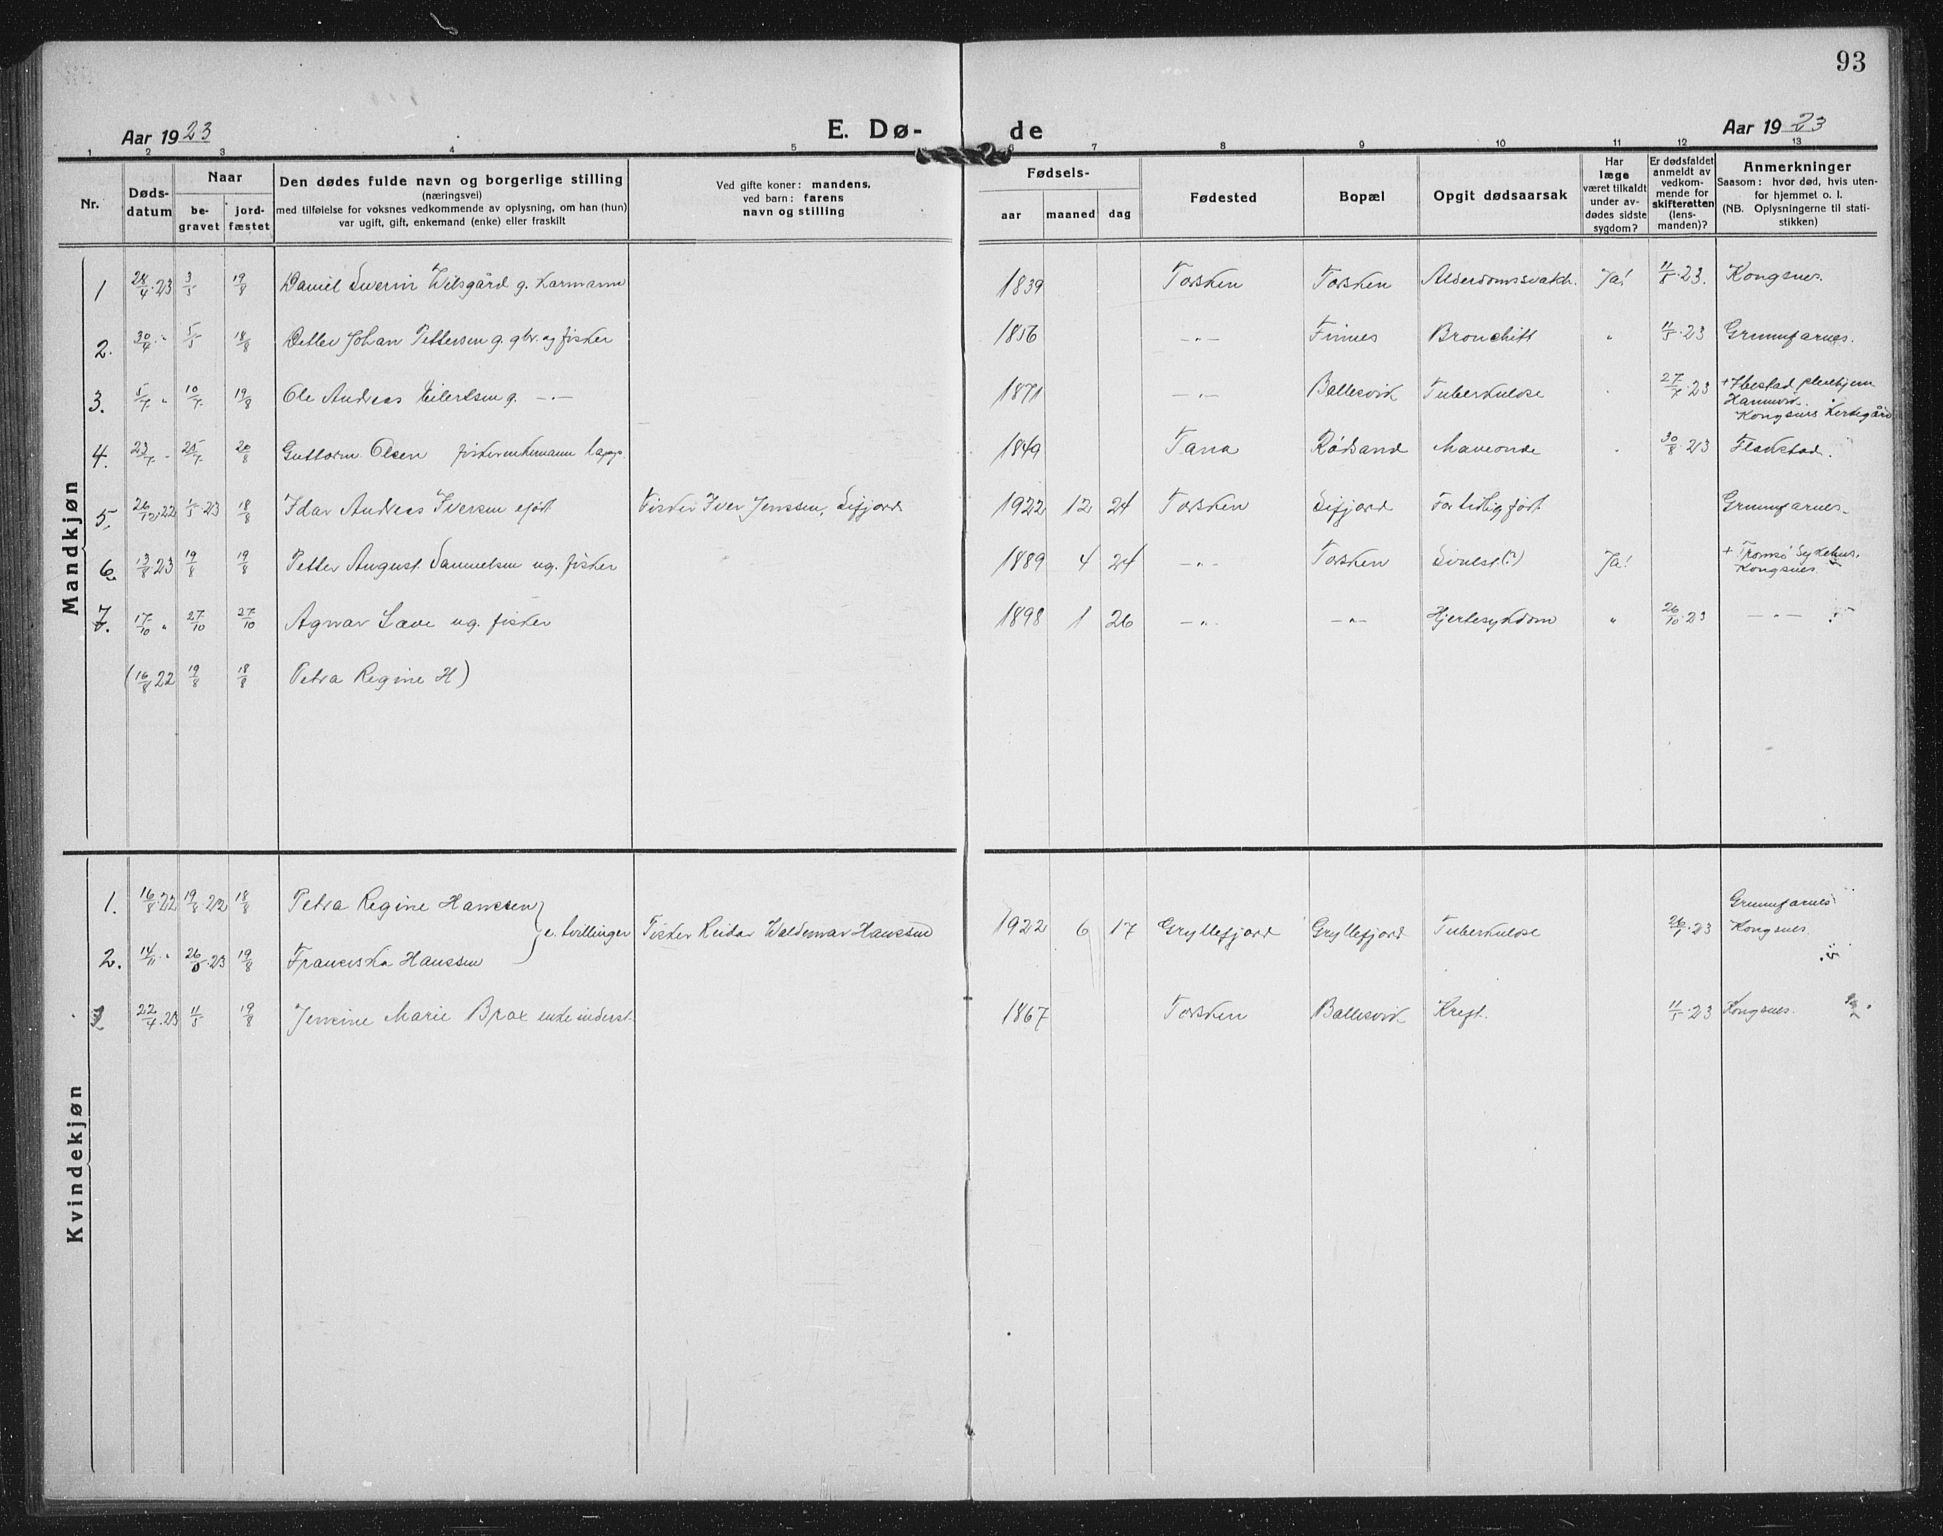 93
Aar 1923 E. Dø- de Aar 1923
1 2 3 4 5 6 7 8 9 10 11 12 13
Nr.
Døds-
datum
Naar
be-
gravet
jord-
fæstet
Den dødes fulde navn og borgerlige stilling
(næringsvei)
med tilføielse for voksnes vedkommende av oplysning, om han (hun)
var ugift, gift, enkemand (enke) eller fraskilt
Ved gifte koner: mandens,
ved barn: farens
navn og stilling
Fødsels-
aar maaned dag
Fødested
Bopæl
Opgit dødsaarsak
Har
læge
været tilkaldt
under av-
dødes sidste
sygdom?
Er dødsfaldet
anmeldt av
vedkom-
mende for
skifteretten
(lens-
manden)?
Anmerkninger
Saasom: hvor død, hvis uten-
for hjemmet o. l.
(NB. Oplysningerne til stati-
stikken)
Mandkjøn
1 28/4 23 3/5 19/8 Daniel Severin Wilsgård g. 1839 Torsken Torsken Alderdomssvakh. Ja! 11/5 23. Kongsnes.
2. 30/4 " 5/5 18/8 Detlev Johan Pettersen g. gbr. og fisker 1856 -"- Finnes Bronchitt " 11/5 23 Grunnfarnes.
3. 5/7 " 10/7 19/8 Ole Andreas Eilertsen g. -"- 1871 -"- Ballesvik Tuberkulose " 27/7 23 + Ibestad pleiehjem
Hamnvik.
Kongsnes kirkegård
4. 23/7 " 25/7 20/8 Guttorm Olsen fisker enkemann 1849 Tana Rødsand Maveonde " 30/8 23 Flakstad.
5. 26/12 22 1/5 23 18/8 Idar Andreas Iversen Fisker Iver Jenssen, Sifjord 1922 12 24 Torsken Sifjord For tidlig født Grunnfarnes.
6. 13/8 23 19/8 19/8 Petter August Samuelsen ug. fisker 1889 4 24 -"- Torsken Svulst (?) Ja! + Tromsø Sykehus.
Kongsnes.
7. 17/10 " 27/10 27/10 Agnar Lave ug. fisker 1898 1 26 -"- -"- Hjertesykdom " 26/10 23 -"-
(16/8 22 19/8 18/8 Petra Regine H)
Kvindekjøn
1. 16/8 22 19/8 22 18/8 Petra Regine Hanssen Grunnfarnes
e. tvillinger Fisker Reidar Waldemar Hanssen 1922 6 17 Gryllefjord Gryllefjord Tuberkulose 26/1 23 Kongsnes.
2. 14/11 " 19/8 Franciska Hanssen
3 22/4 23 11/5 19/8 Jensine Marie Brox enke 1867 Torsken Ballesvik Kreft. 11/5 23 Kongsnes.